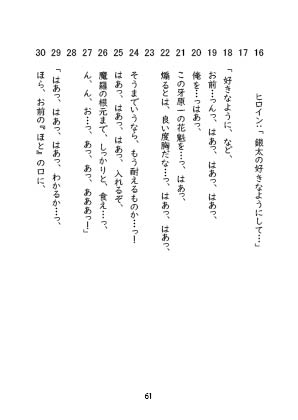 16 ヒロイン:「銀太の好きなようにして…」
17
18 「好きなように、など、
19 お前…っんっ、はあっ、はあっ、はあっ、
20 俺を…っはあっ、
21 この牙原一の花魁を…っ、はあっ、
22 煽るとは、良い度胸だな…っ、はあっ、はあっ、
23
24 そうまでいうなら、もう耐えるものか…っ!
25 はあっ、はあっ、はあっ、入れるぞ、
26 魔羅の根元まで、しっかりと、食え…っ、
27 ん、ん、お…っ、あっ、あっ、あああっ!」
28
29 「はあっ、はあっ、はあっ、わかるか…っ、
30 ほら、お前の『ほと』の口に、
61